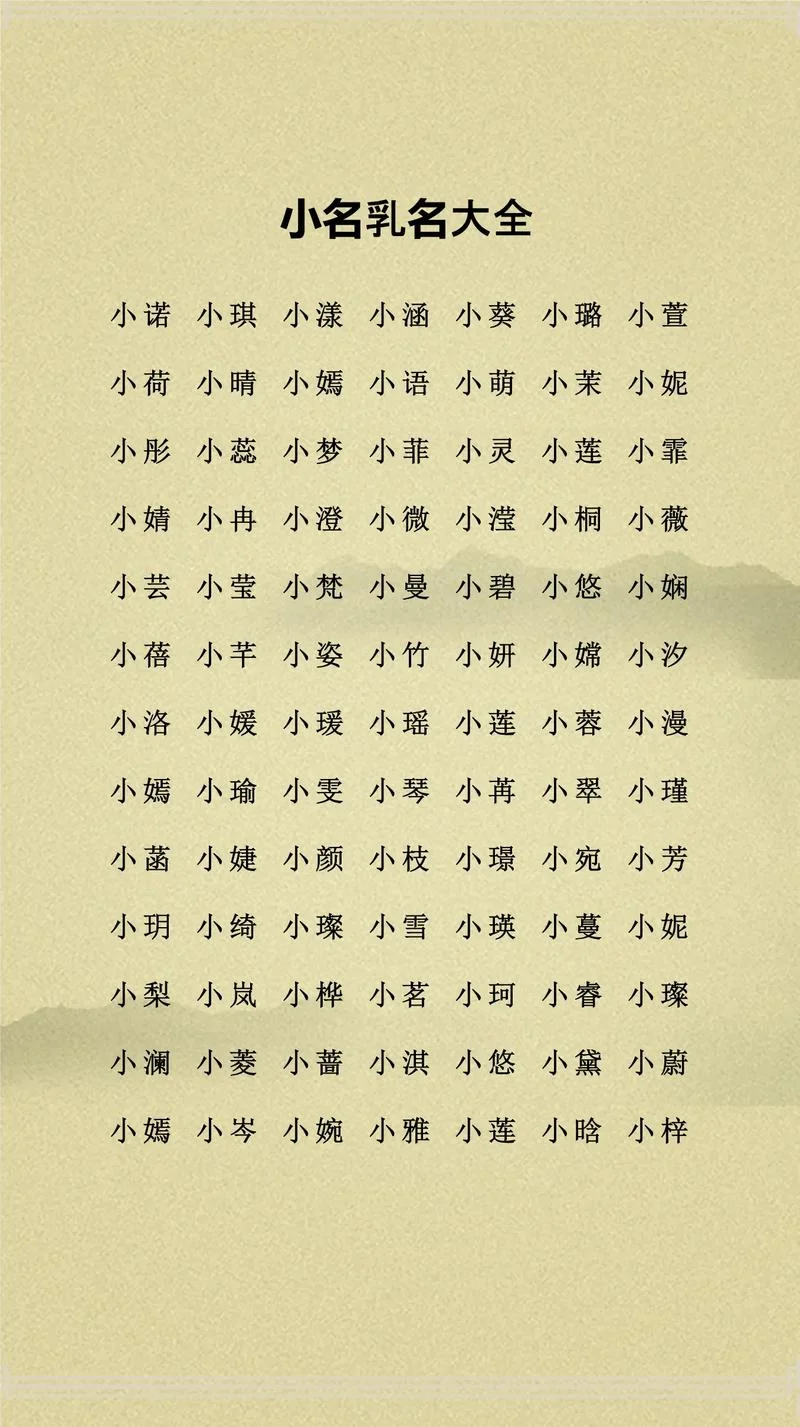 小名乳名大全
小诺 小琪 小漾 小涵 小葵 小璐 小萱
小荷 小晴 小嫣 小语 小萌 小茉 小妮
小彤 小蕊 小梦 小菲 小灵 小莲 小霏
小婧 小冉 小澄 小微 小滢 小桐 小薇
小芸 小莹 小梵 小曼 小碧 小悠 小娴
小蓓 小芊 小姿 小竹 小妍 小嫦 小汐
小洛 小媛 小瑗 小瑶 小莲 小蓉 小漫
小嫣 小瑜 小雯 小琴 小苒 小翠 小瑾
小菡 小婕 小颜 小枝 小璟 小宛 小芳
小玥 小绮 小璨 小雪 小瑛 小蔓 小妮
小梨 小岚 小桦 小茗 小珂 小睿 小璨
小澜 小菱 小蔷 小淇 小悠 小黛 小蔚
小嫣 小岑 小婉 小雅 小莲 小晗 小梓